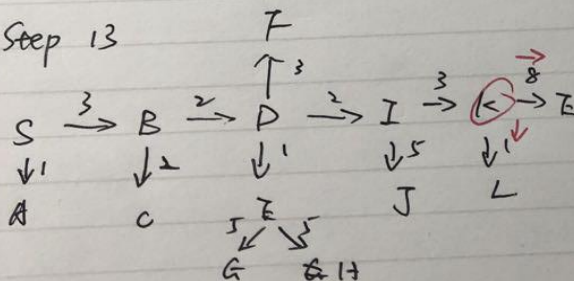 Step 13
F
↑ 3
S →3 B →2 D →2 I →3 K →8 E
↓1 ↓2 ↓1 ↓5 ↓1
A C E J L
5 ↙ ↘ 5
G H